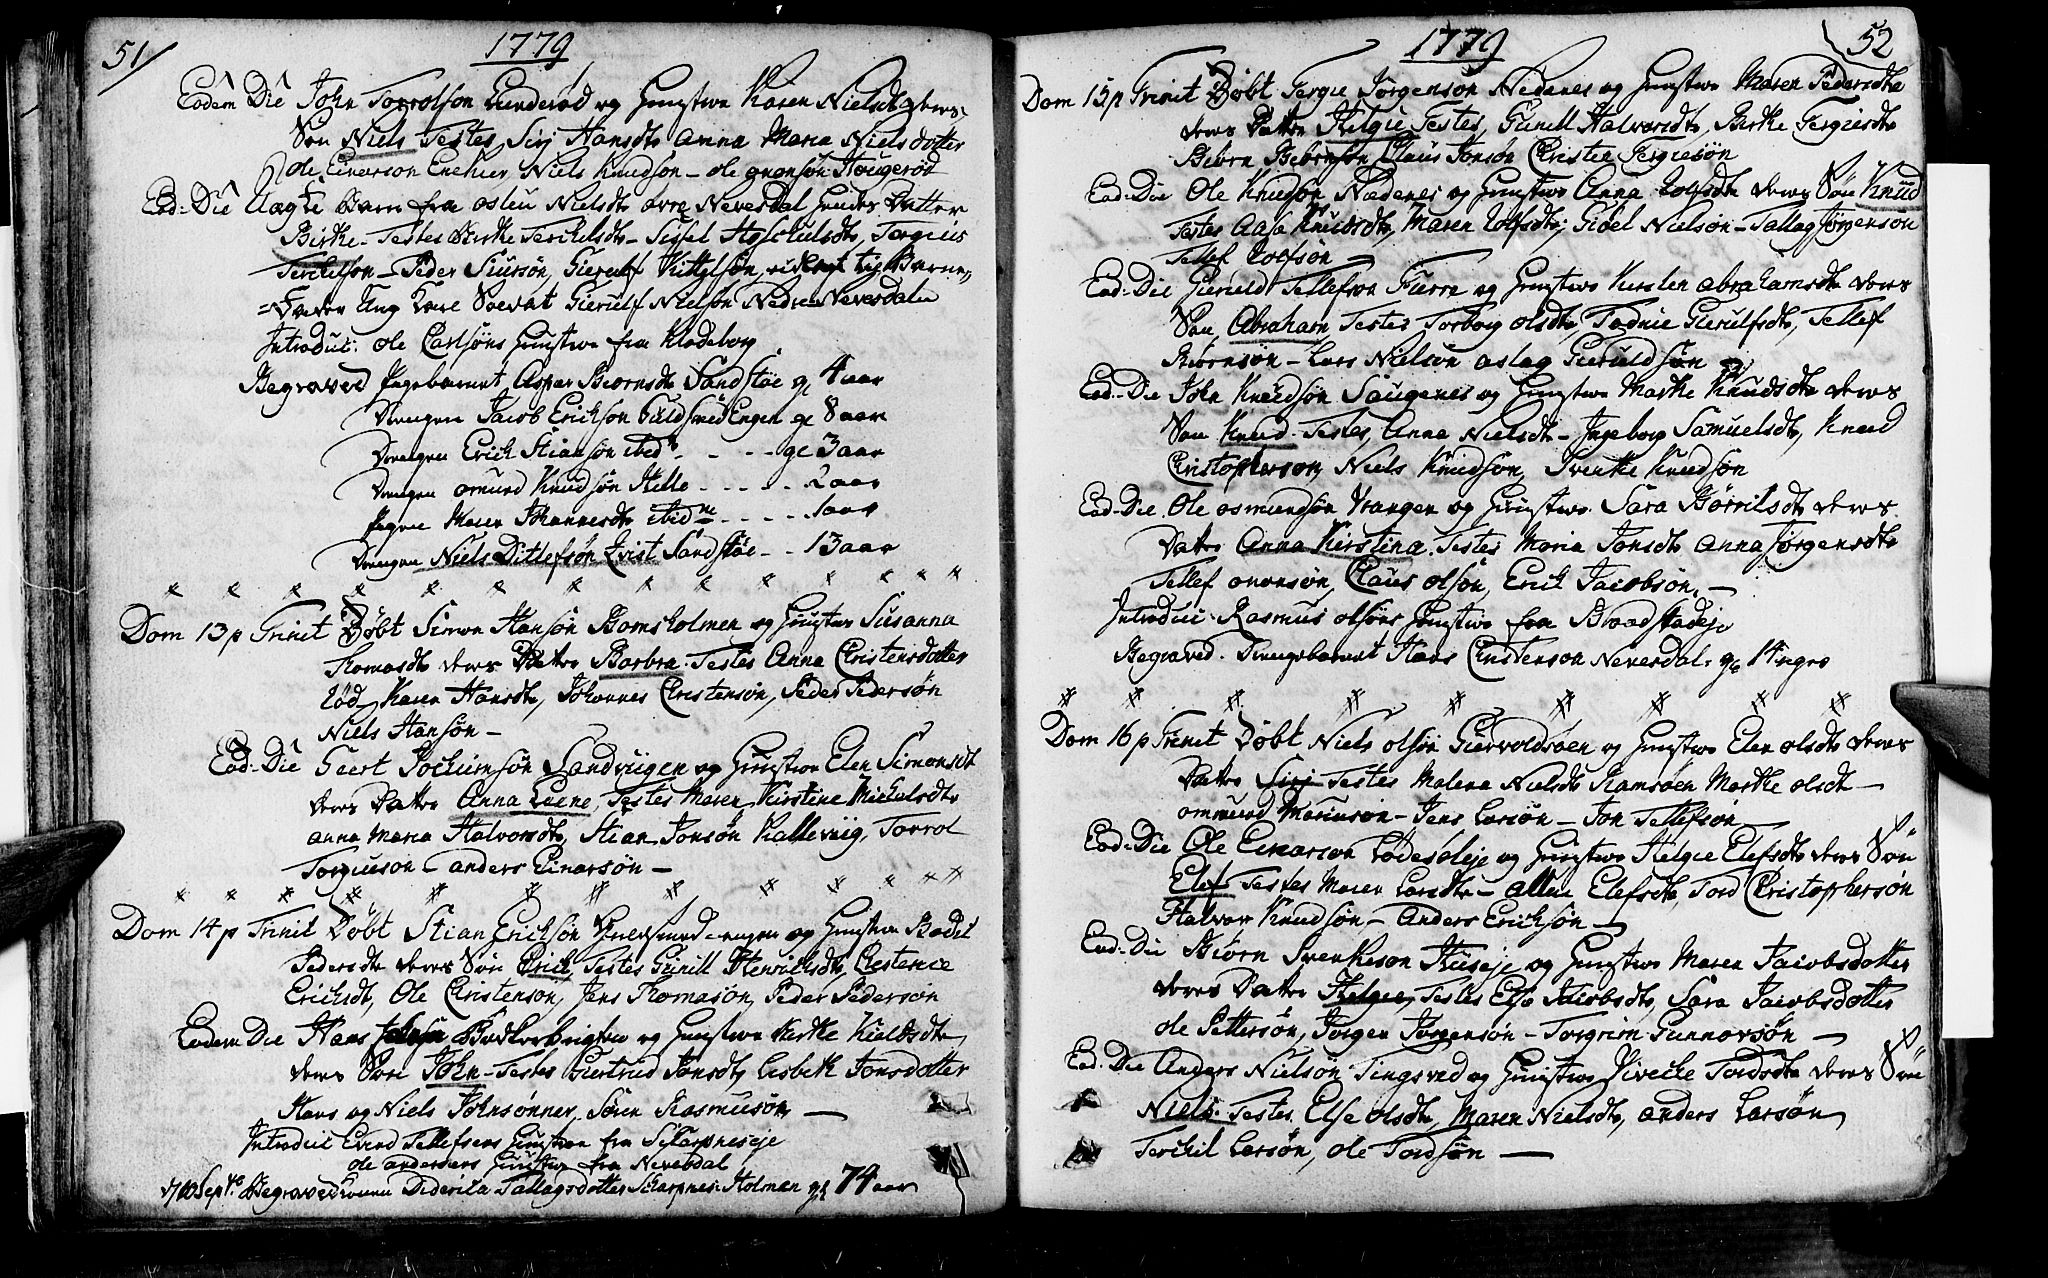 51/
1779
Eodem Die John Torrolson Lunderød og Hustrue Karen Nielsdt deres
Søn Niels Testes Sirj Hansdt Anna Maria Nielsdotter
Ole Einerson Niels Knudson - Ole Haugerød
Eod: Die Uægte Barn fra Nielsdt øvre Neversdal hendes Datter
Birthe - Testes Birthe Terchelsdt - Sissel Torgius
Terchelson - Peder Siursøn, Gierulf Kittelsøn, Barne
=Fader Ung Karl Soldat Gierulf Nielsøn Nedre Neversdalen
Introduc: Ole Carlsøns Hustrue fra Klodeborg
Begraved Pigebarnet Biørnsdt Sandstøe gl 4 aar
Drengen Jacob Erichson Engen gl 8 aar
Drengen Erich Stiansøn ibidm - - - - gl 3 aar
Drengen Omund Knudsøn Helle - - - - 2 aar
Pigen Maren Johannesdt ibidne - - - - 1 aar
Drengen Niels Ditlefsøn Qvist Sandstøe - - 13 aar
Dom 13 p Trinit Døbt Simon Hansøn Bomsholmen og Hustrue Susanna
Thomasdt deres Datter Barbra - Testes Anna Christensdotter
Rød, Karen Hansdt, Johannes Christensøn, Peder Pedersøn
Niels Hansøn -
Eod: Die Geert Jochumsøn Sandviigen og Hustrue Elen Simonsdt
deres Datter Anna Leene, Testes Maren Kirstine Michelsdt
Anna Maria Halvorsdt, Stian Jonsøn Kalleviig, Torrol
Torgiuson - Anders Einarsøn -
Dom 14 p Trinit Døbt Stian Erichsøn engen og Hustrue Bodil
Pedersdt deres Søn Erich, Testes Gunill Henrichsdt, Chrstence
Erichsdt, Ole Christenson, Jens Thomasøn, Peder Pedersøn
Eodem Die Hans og Hustrue
deres Søn John - Testes Giertrud Jonsdt, Lisbeth Jonsdotter
Hans og Niels Johnsønner, Søren Rasmusøn -
Introduc Evind Tellefsens Hustrue fra Skarpneseje
Ole Andersens Hustrue fra Neversdal
d/10 Septbr Begraved Konen Diderica Tallagsdotter Skarpnes-Holmen gl 74 aar
52
1779
Dom 15 p Trinit Døbt Tergie Jørgenson Nedenes og Hustrue Maren Pedersdtr
deres Datter Helgie Testes, Gunill Halvorsdt, Birthe Tergiesdt
Biørn Biørnsøn Claus Jonsøn Christen Tergiesøn
Eod: Die Ole Knudsøn Nædenes og Hustrue Anna Rolfsdt deres Søn Knud
Testes Aase Knudsdt, Maren Rolfsdt, Giøel Nielsøn - Tallag Jørgensøn
Tellef Rolfsøn -
Eod: Die Gieruld Tellefson Fierre og Hustrue Kirsten Abrahamsdt deres
Søn Abraham Testes Torborg Olsdt, Todnie Gierulfsdt, Tellef
Biørnsøn - Lars Nielsøn Aslag Gieruldsøn
Eod: Die John Knudsøn Saugenes og Hustrue Marthe Knudsdt deres
Søn Knud - Testes, Anne Nielsdt - Ingeborg Samuelsdt, Knud
Christopherson, Niels Knudsøn, Svenke Knudsøn
Eod: Die Ole Osmundsøn Vrangen og Hustrue Sara Børrilsdt deres
Datter Anna Kirstina. Testes Maria Jonsdt Anna Jørgensdt
Tellef Onensøn, Claus Olsøn, Erich Jacobsøn. -
Introduc: Rasmus Olsøns Hustrue fra Braadstadeje
Begraved. Drengebarnet Hans Christenson Neversdal gl 14 uger
Dom 16 p Trinit Døbt Niels Olsøn Giervoldsøen og Hustrue Elen Olsdt deres
Datter Sirj Testes Malene Nielsdt Ramsøen Marthe Olsdt -
Omund Moriusøn - Jens Larsøn - Jon Tellefsøn
Eod: Die Ole Einarson Lødesøleje og Hustrue Helgie Elefsdt deres Søn
Elef Testes Maren Larsdt - Allen Elefsdt, Tord Christophersøn
Halvor Knudsøn - Anders Erichsøn -
Eod: Die Biørn Svenkeson Huseje og Hustrue Maren Jacobsdotter
deres Datter Helgie, Testes Else Jacobsdt, Sara Jacobsdotter
Ole Pettersøn, Jørgen Jørgensøn - Torgrim Gunnorsøn -
Eod: Die Anders Nielsøn Tingsved og Hustrue Vivecke Tordsdt deres Søn
Niels Testes. Else Olsdt, Maren Nielsdt, Anders Larsøn
Terchil Larsøn, Ole Tordsøn -